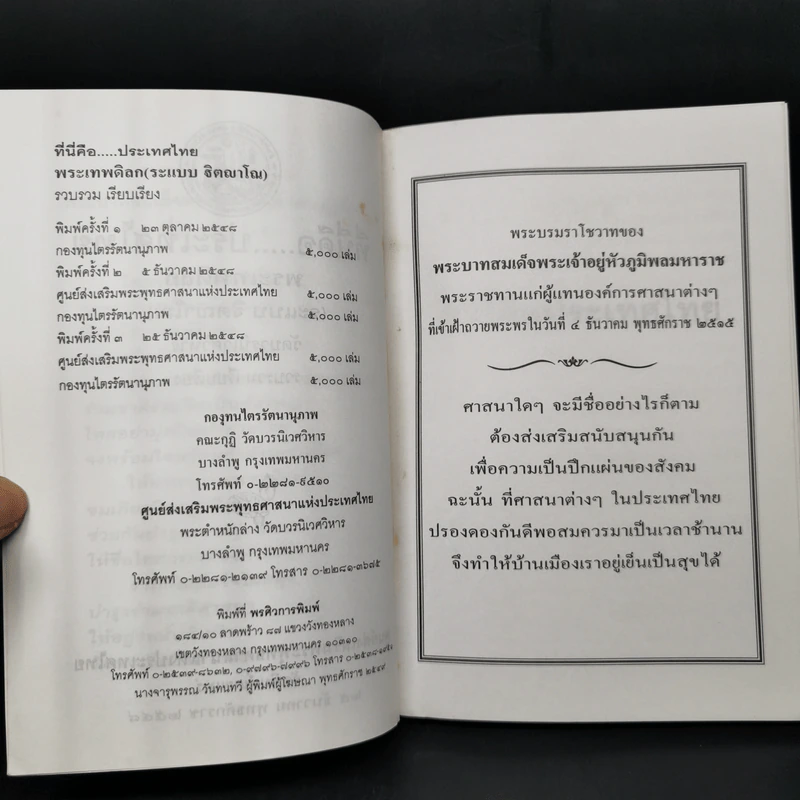 ที่นี่คือ.....ประเทศไทย
พระเทพดิลก(ระแบบ ฐิตญาโณ)
รวบรวม เรียบเรียง
พิมพ์ครั้งที่ ๑ ๒๓ ตุลาคม ๒๕๔๘
กองทุนไตรรัตนานุภาพ ๕,๐๐๐ เล่ม
พิมพ์ครั้งที่ ๒ ๕ ธันวาคม ๒๕๔๘
ศูนย์ส่งเสริมพระพุทธศาสนาแห่งประเทศไทย ๕,๐๐๐ เล่ม
กองทุนไตรรัตนานุภาพ ๕,๐๐๐ เล่ม
พิมพ์ครั้งที่ ๓ ๒๕ ธันวาคม ๒๕๔๘
ศูนย์ส่งเสริมพระพุทธศาสนาแห่งประเทศไทย ๕,๐๐๐ เล่ม
กองทุนไตรรัตนานุภาพ ๕,๐๐๐ เล่ม
กองทุนไตรรัตนานุภาพ
คณะกุฏิ วัดบวรนิเวศวิหาร
บางลำพู กรุงเทพมหานคร
โทรศัพท์ ๐-๒๒๘๑-๙๕๑๐
ศูนย์ส่งเสริมพระพุทธศาสนาแห่งประเทศไทย
พระตำหนักล่าง วัดบวรนิเวศวิหาร
บางลำพู กรุงเทพมหานคร
โทรศัพท์ ๐-๒๒๘๑-๒๑๓๙ โทรสาร ๐-๒๒๘๑-๓๖๘๕
พิมพ์ที่ พรศิวการพิมพ์
๑๘๔/๑๐ ลาดพร้าว ๘๗ แขวงวังทองหลาง
เขตวังทองหลาง กรุงเทพมหานคร ๑๐๓๑๐
โทรศัพท์ ๐-๒๕๓๙-๘๖๓๒, ๐-๙๗๙๖-๗๙๙๖ โทรสาร
นางจารุพรรณ วันทนทวี ผู้พิมพ์ผู้โฆษณา พุทธศักราช ๒๕๔๙
พระบรมราโชวาทของ
พระบาทสมเด็จพระเจ้าอยู่หัวภูมิพลมหาราช
พระราชทานแก่ผู้แทนองค์การศาสนาต่างๆ
ที่เข้าเฝ้าถวายพระพรในวันที่ ๔ ธันวาคม พุทธศักราช ๒๕๑๕
ศาสนาใดๆ จะมีชื่ออย่างไรก็ตาม
ต้องส่งเสริมสนับสนุนกัน
เพื่อความเป็นปึกแผ่นของสังคม
ฉะนั้น ที่ศาสนาต่างๆ ในประเทศไทย
ปรองดองกันดีพอสมควรมาเป็นเวลาช้านาน
จึงทำให้บ้านเมืองเราอยู่เย็นเป็นสุขได้